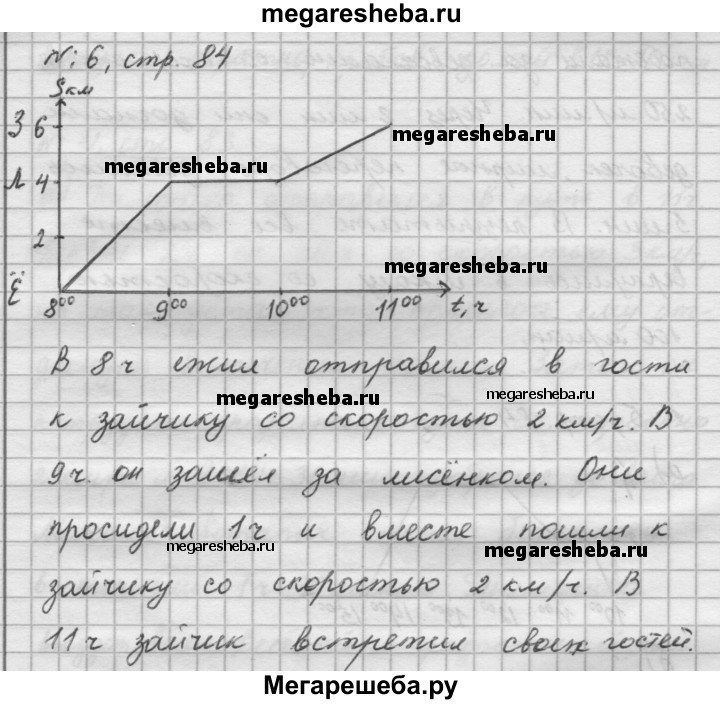 megaresheba.ru
№ 6, стр. 84
Sкм
З 6
megaresheba.ru
megaresheba.ru
Л 4
2
megaresheba.ru
Ё
8⁰⁰ 9⁰⁰ 10⁰⁰ 11⁰⁰ t, ч
В 8 ч ежик отправился в гости
megaresheba.ru
megaresheba.ru
к зайчику со скоростью 2 км/ч. В
9 ч. он зашёл за лисёнком. Они
просидели 1 ч и вместе пошли к
megaresheba.ru
megaresheba.ru
зайчику со скоростью 2 км/ч. В
11 ч зайчик встретил своих гостей.
Мегарешеба.ру